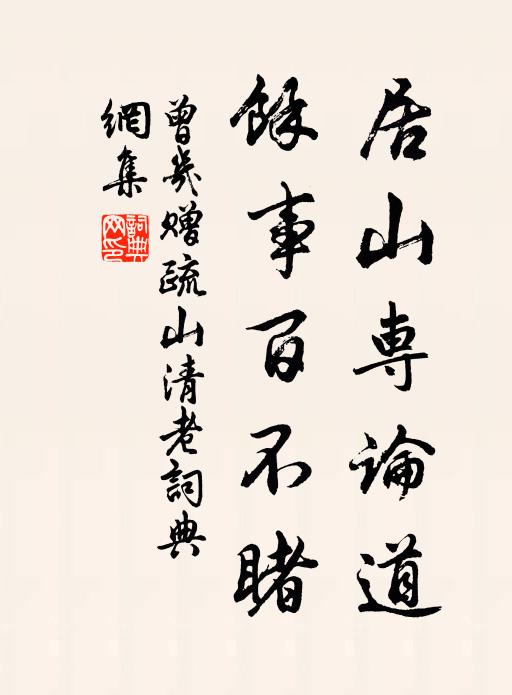 居山専論道
餘事百不睹
曾幾贈疏山清老詞典
網集
詞典
网印